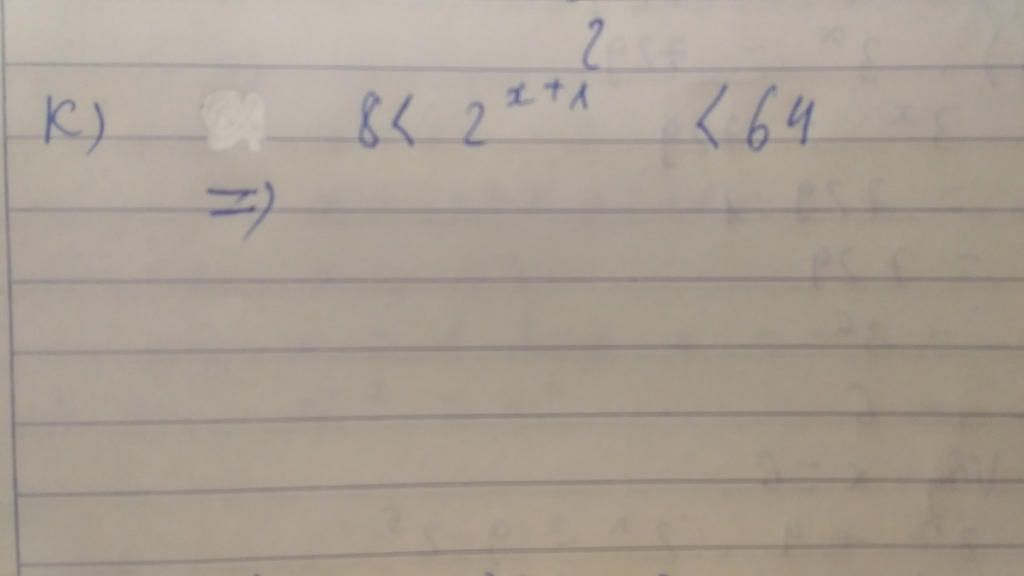 2
K) 8 < 2^{x+1} < 64
=>